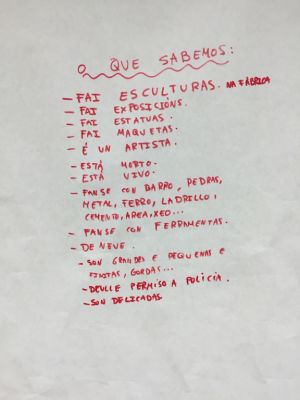 O QUE SABEMOS:
- FAI ESCULTURAS. NA FÁBRICA
- FAI EXPOSICIÓNS.
- FAI ESTATUAS.
- FAI MAQUETAS.
- É UN ARTISTA.
- ESTÁ MORTO.
- ESTÁ VIVO.
- FANSE CON BARRO, PEDRAS,
METAL, FERRO, LADRILLO,
CEMENTO, AREA, XEO...
- FANSE CON FERRAMENTAS.
- DE NEVE.
- SON GRANDES E PEQUENAS E
FINITAS, GORDAS...
- DEULLE PERMISO A POLICIA.
- SON DELICADAS.